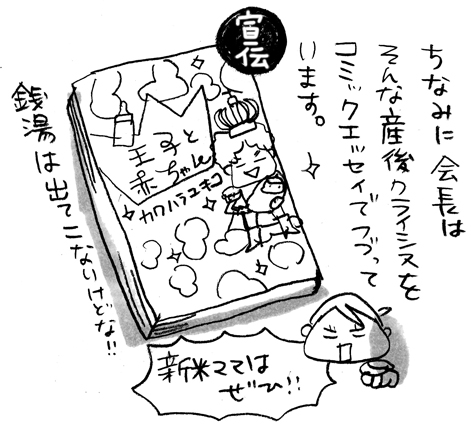 宣伝
ちなみに会長は
そんな産後クライシスを
コミックエッセイでつづって
います。
王子と
赤ちゃん
カワハラユキコ
銭湯は出てこないけどな!!
新米ママは
ぜひ!!